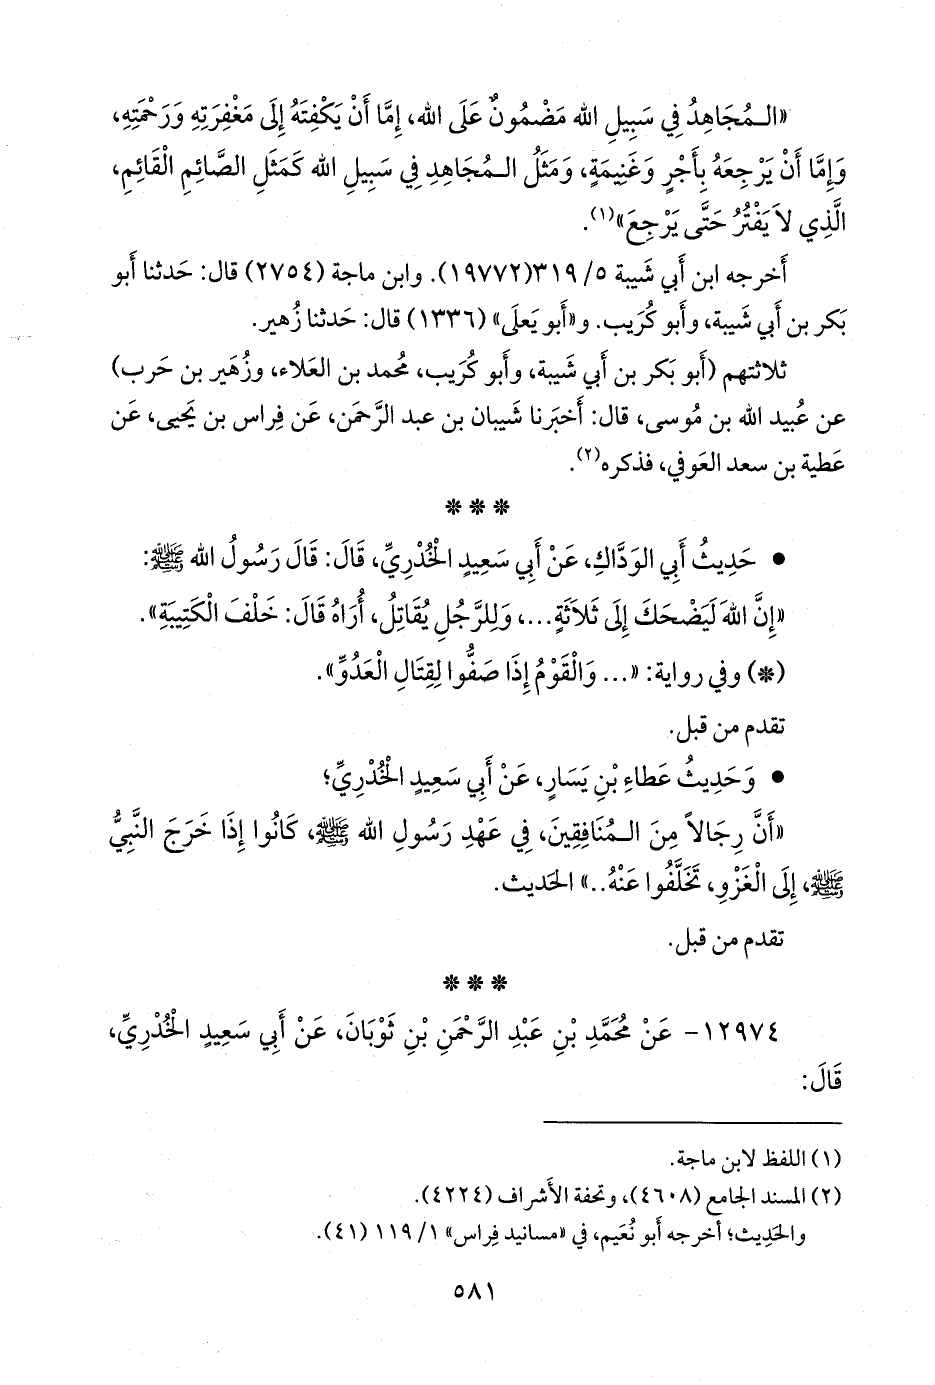 «الـمُجَاهِدُ فِي سَبِيلِ الله مَضْمُونٌ عَلَى الله، إِمَّا أَنْ يَكْفِتَهُ إِلَى مَغْفِرَتِهِ وَرَحْمَتِهِ،
وَإِمَّا أَنْ يَرْجِعَهُ بِأَجْرٍ وَغَنِيمَةٍ، وَمَثَلُ الـمُجَاهِدِ فِي سَبِيلِ الله كَمَثَلِ الصَّائِمِ الْقَائِمِ،
الَّذِي لاَ يَفْتُرُ حَتَّى يَرْجِعَ»(١).
أَخرجه ابن أَبي شَيبة ٥/ ٣١٩(١٩٧٧٢). وابن ماجة (٢٧٥٤) قال: حَدثنا أَبو
بَكر بن أَبي شَيبة، وأَبو كُرَيب. و«أَبو يَعلَى» (١٣٣٦) قال: حَدثنا زُهير.
ثلاثتهم (أَبو بَكر بن أَبي شَيبة، وأَبو كُرَيب، مُحمد بن العَلاء، وزُهَير بن حَرب)
عن عُبيد الله بن مُوسى، قال: أَخبَرنا شَيبان بن عبد الرَّحمَن، عَن فِراس بن يَحيى، عَن
عَطية بن سعد العَوفي، فذكره(٢).
❊ ❊ ❊
• حَدِيثُ أَبِي الوَدَّاكِ، عَنْ أَبِي سَعِيدٍ الْخُدْرِيِّ، قَالَ: قَالَ رَسُولُ الله ﷺ:
«إِنَّ اللهَ لَيَضْحَكَ إِلَى ثَلاَثَةٍ...، وَلِلرَّجُلِ يُقَاتِلُ، أُرَاهُ قَالَ: خَلْفَ الْكَتِيبَةِ».
(❊) وفي رواية: «... وَالْقَوْمُ إِذَا صَفُّوا لِقِتَالِ الْعَدُوِّ».
تقدم من قبل.
• وَحَدِيثُ عَطاءِ بْنِ يَسَارٍ، عَنْ أَبِي سَعِيدٍ الْخُدْرِيِّ؛
«أَنَّ رِجَالاً مِنَ الـمُنَافِقِينَ، فِي عَهْدِ رَسُولِ الله ﷺ، كَانُوا إِذَا خَرَجَ النَّبِيُّ
ﷺ، إِلَى الْغَزْوِ، تَخَلَّفُوا عَنْهُ..» الحَديث.
تقدم من قبل.
❊ ❊ ❊
١٢٩٧٤- عَنْ مُحَمَّدِ بْنِ عَبْدِ الرَّحْمَنِ بْنِ ثَوْبَانَ، عَنْ أَبِي سَعِيدٍ الْخُدْرِيِّ،
قَالَ:
(١) اللفظ لابن ماجة.
(٢) المسند الجامع (٤٦٠٨)، وتحفة الأَشراف (٤٢٢٤).
والحَدِيث؛ أخرجه أَبو نُعَيم، في «مسانيد فِراس» ١/ ١١٩ (٤١).
٥٨١